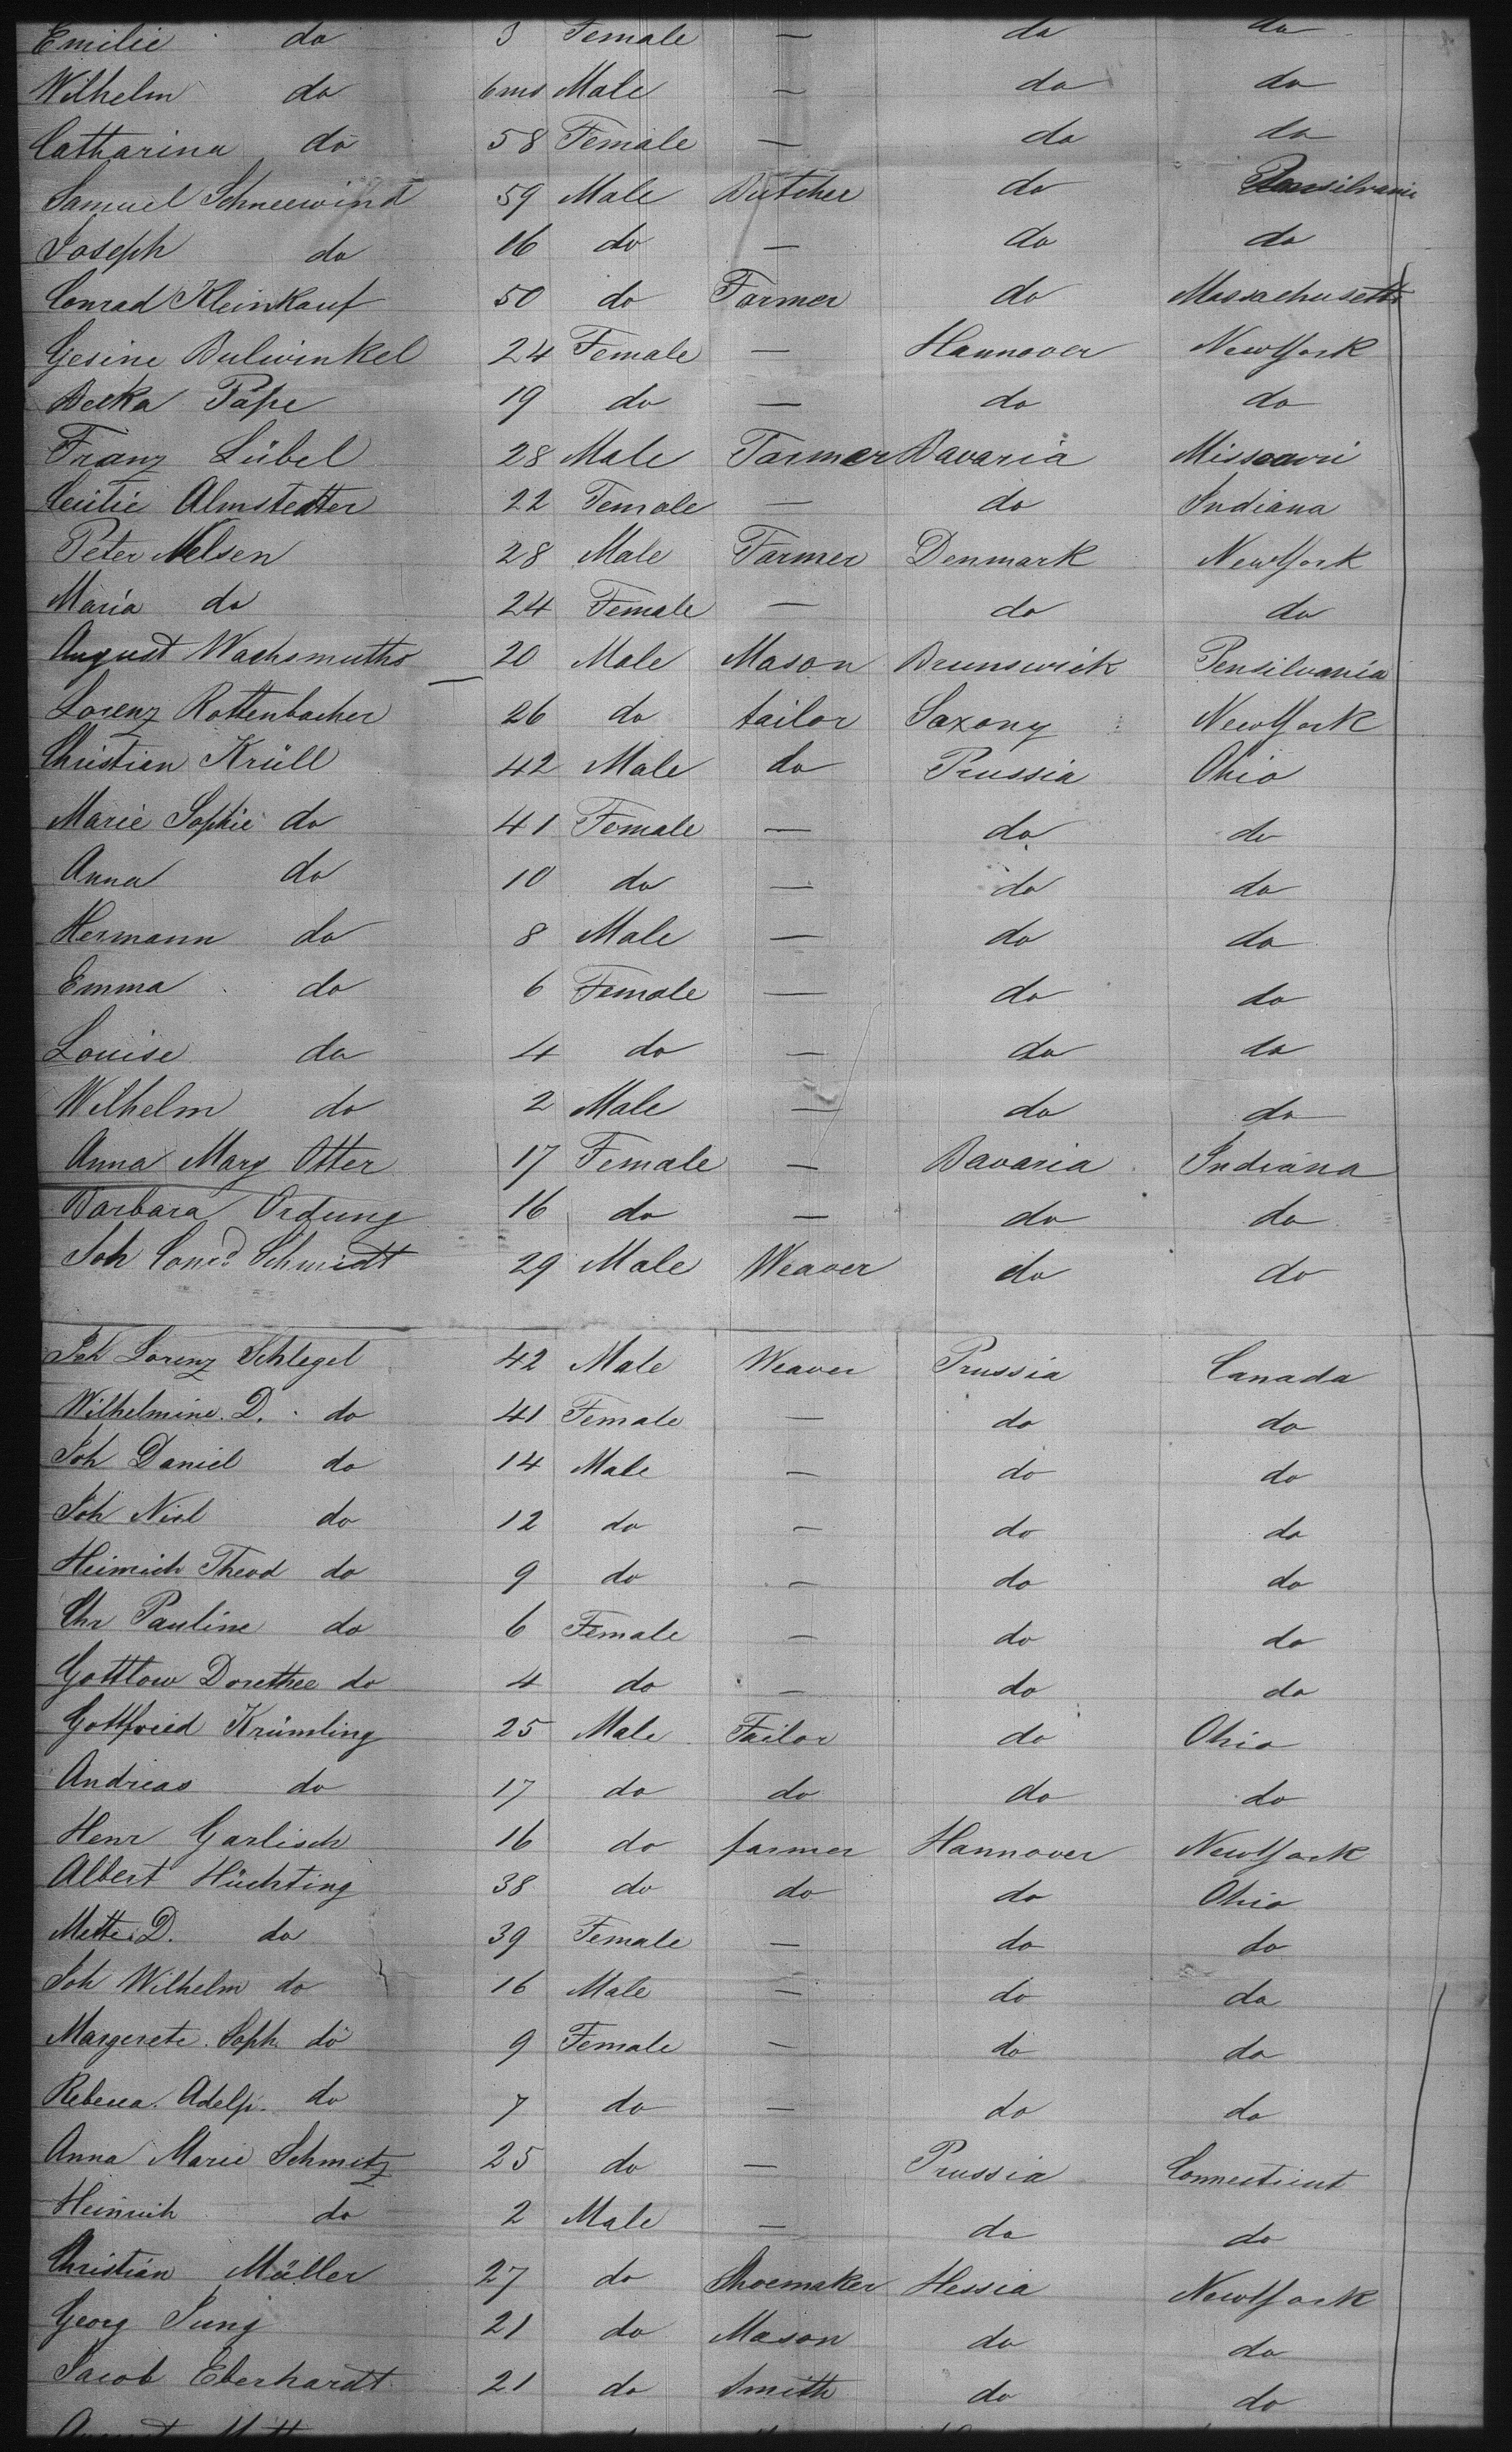 Emilie do 3 Female — do do
Wilhelm do 6ms Male — do do
Catharina do 58 Female — do do
Samuel Schneewind 59 Male Butcher do Pensilvania
Joseph do 16 do — do do
Conrad Kleinkauf 50 do Farmer do Massachusetts
Gesine Bulwinkel 24 Female — Hannover NewYork
Becka Pape 19 do — do do
Franz Lübel 28 Male Farmer Bavaria Missouri
Cecilie Almstedter 22 Female — do Indiana
Peter Nelsen 28 Male Farmer Denmark NewYork
Maria do 24 Female — do do
August Wachsmuths 20 Male Mason Brunswick Pensilvania
Lorenz Rottenbacher 26 do tailor Saxony NewYork
Christian Krüll 42 Male do Prussia Ohio
Marie Sophie do 41 Female — do do
Anna do 10 do — do do
Hermann do 8 Male — do do
Emma do 6 Female — do do
Louise do 4 do — do do
Wilhelm do 2 Male — do do
Anna Marg Otter 17 Female — Bavaria Indiana
Barbara Ordung 16 do — do do
Joh Conrd Schmidt 29 Male Weaver do do
Joh Lorenz Schlegel 42 Male Weaver Prussia Canada
Wilhelmine D. do 41 Female — do do
Joh Daniel do 14 Male — do do
Joh do 12 do — do do
Heinrich Theod do 9 do — do do
Chr Pauline do 6 Female — do do
Dorethee do 4 do — do do
Gottfried Krümling 25 Male Tailor do Ohio
Andreas do 17 do do do do
Henr Garlisch 16 do farmer Hannover NewYork
Albert Hüchting 38 do do do Ohio
Mette D. do 39 Female — do do
Joh Wilhelm do 16 Male — do do
Margerete Soph do 9 Female — do do
Rebecca Adelh. do 7 do — do do
Anna Marie Schmitz 25 do — Prussia Connecticut
Heinrich do 2 Male — do do
Christian Müller 27 do Shoemaker Hessia NewYork
Georg Jung 21 do Mason do do
Jacob Eberhardt 21 do Smith do do